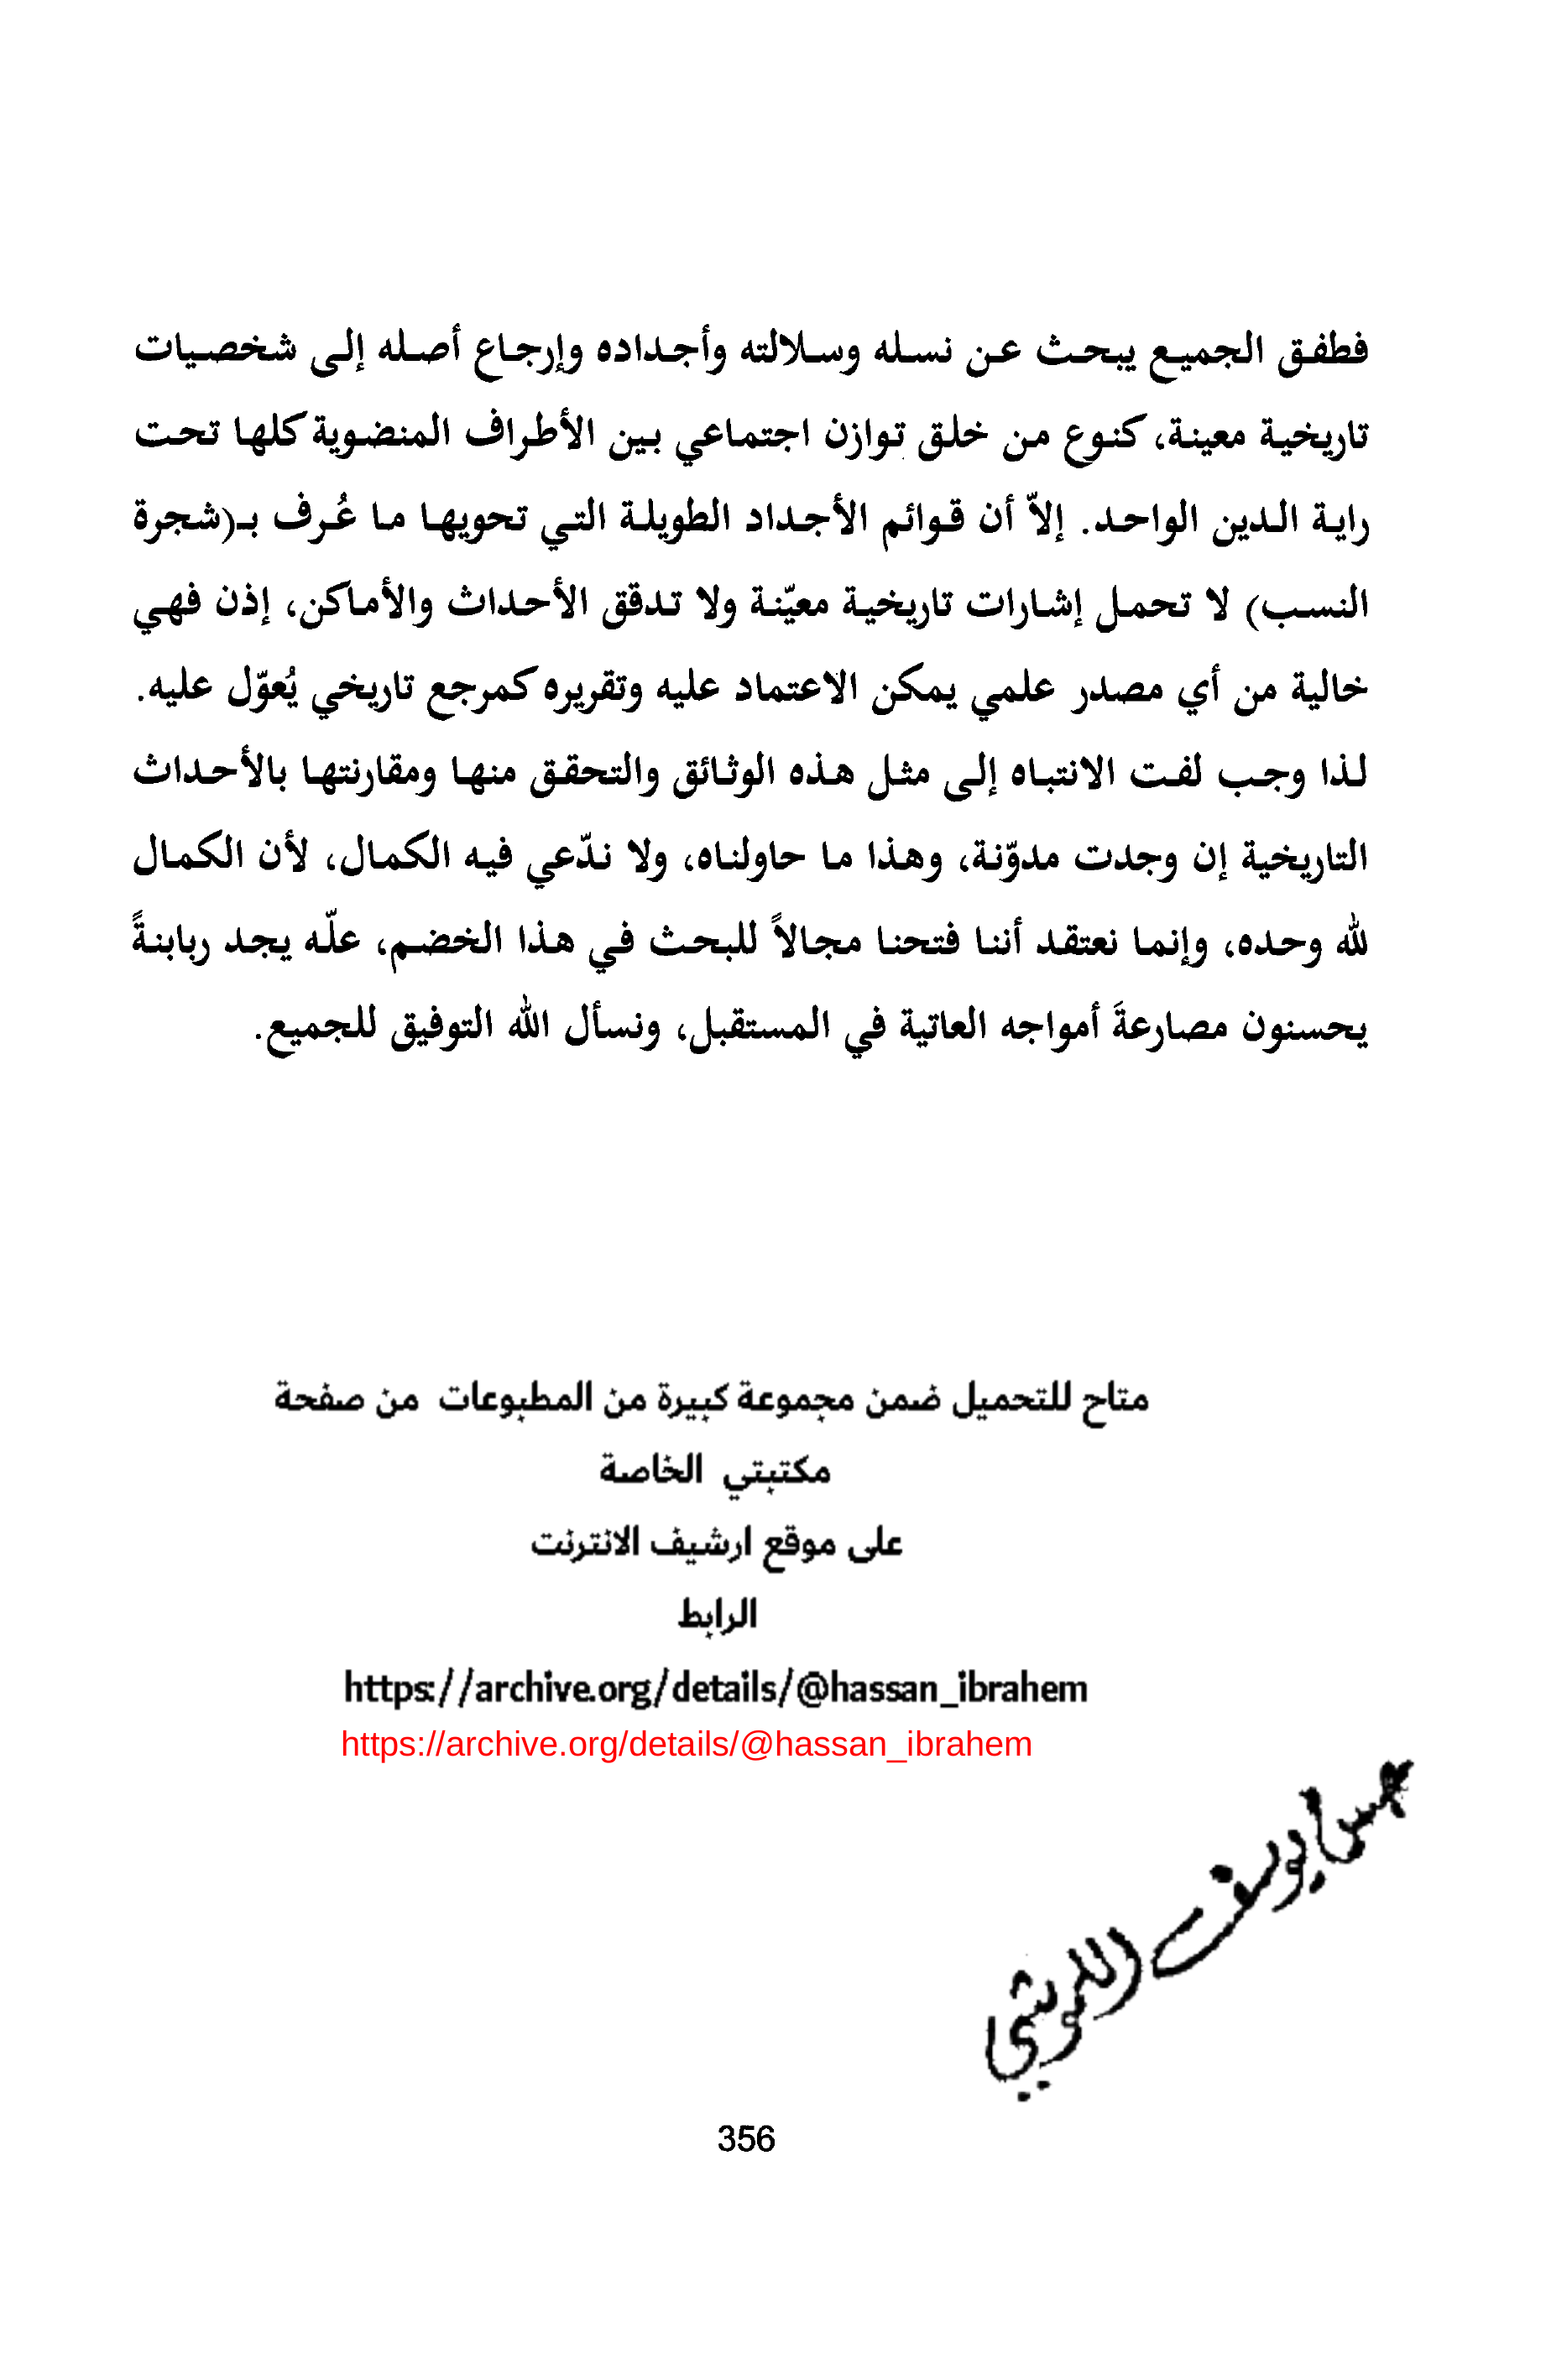 فطفق الجميع يبحث عن نسله وسلالته وأجداده وإرجاع أصله إلى شخصيات
تاريخية معينة، كنوع من خلق توازن اجتماعي بين الأطراف المنضوية كلها تحت
راية الدين الواحد. إلاّ أن قوائم الأجداد الطويلة التي تحويها ما عُرف بـ(شجرة
النسب) لا تحمل إشارات تاريخية معيّنة ولا تدقق الأحداث والأماكن، إذن فهي
خالية من أي مصدر علمي يمكن الاعتماد عليه وتقريره كمرجع تاريخي يُعوّل عليه.
لذا وجب لفت الانتباه إلى مثل هذه الوثائق والتحقق منها ومقارنتها بالأحداث
التاريخية إن وجدت مدوّنة، وهذا ما حاولناه، ولا ندّعي فيه الكمال، لأن الكمال
لله وحده، وإنما نعتقد أننا فتحنا مجالاً للبحث في هذا الخضم، علّه يجد ربابنةً
يحسنون مصارعةَ أمواجه العاتية في المستقبل، ونسأل الله التوفيق للجميع.
متاح للتحميل ضمن مجموعة كبيرة من المطبوعات من صفحة
مكتبتي الخاصة
على موقع ارشيف الانترنت
الرابط
https://archive.org/details/@hassan_ibrahem
https://archive.org/details/@hassan_ibrahem
يوسف
356